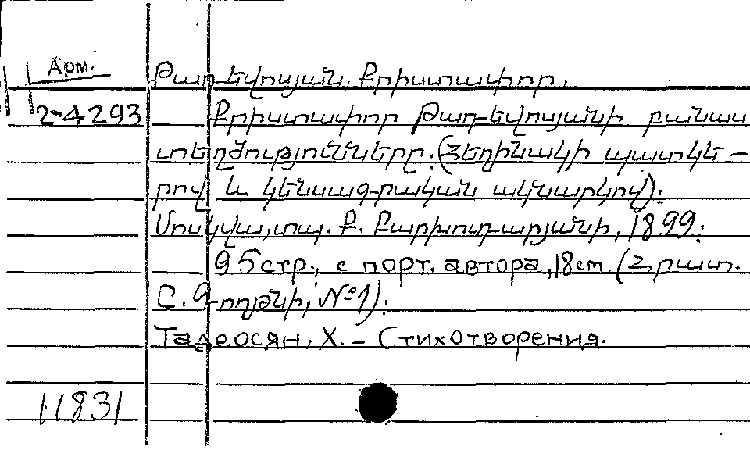 Арм.
Թադեվոսյան, Քրիստափոր.
2-4293 Քրիստափոր Թադեվոսյանի բանաս
տեղծությունները: (Հեղինակի պատկե-
րով և կենսագրական ակնարկով):
Մոսկվա, տպ. Բ. Բարխուդարյանի, 1899:
95 стр., с порт. автора, 18 cm. (Հրատ.
Ս. Գողթնի, №1):
Тадеосян, Х. – Стихотворения.
11831